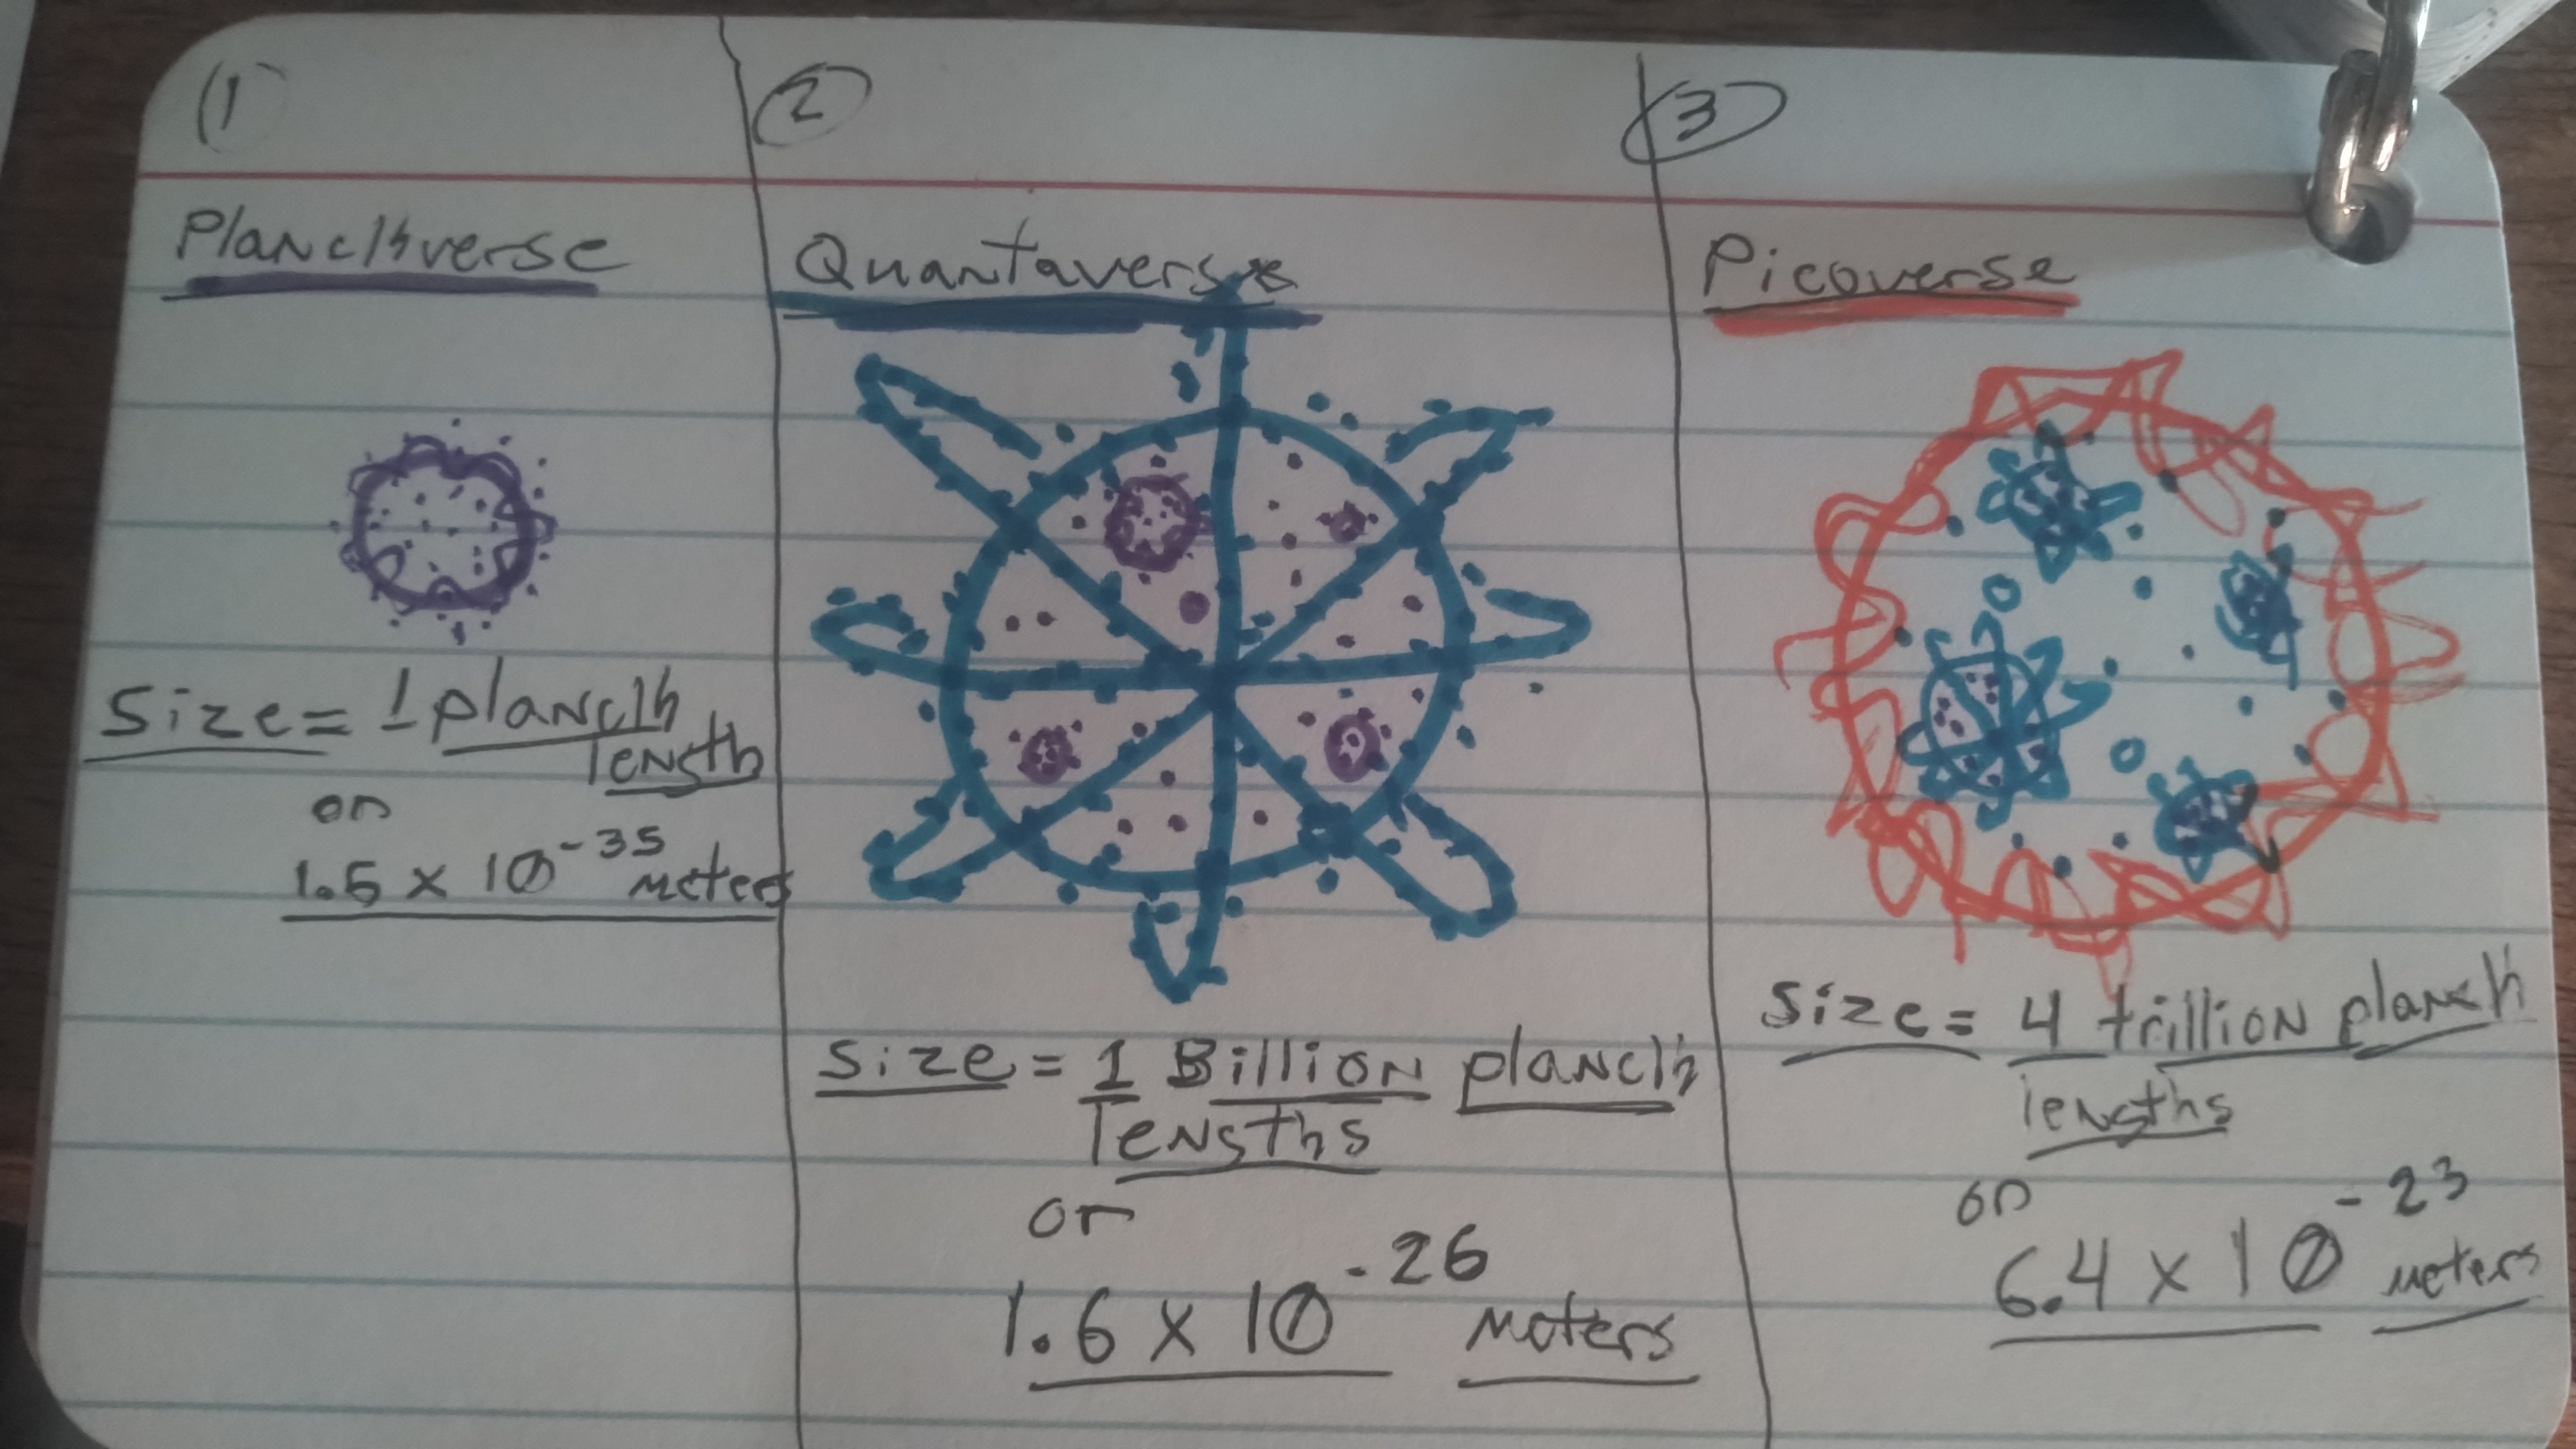 (1)
Planckverse
Size = 1 planck
length
or
1.6 x 10-35 meters
(2)
Quantaverse
Size = 1 Billion planck
lengths
or
1.6 x 10-26 meters
(3)
Picoverse
Size = 4 trillion planck
lengths
or
6.4 x 10-23 meters